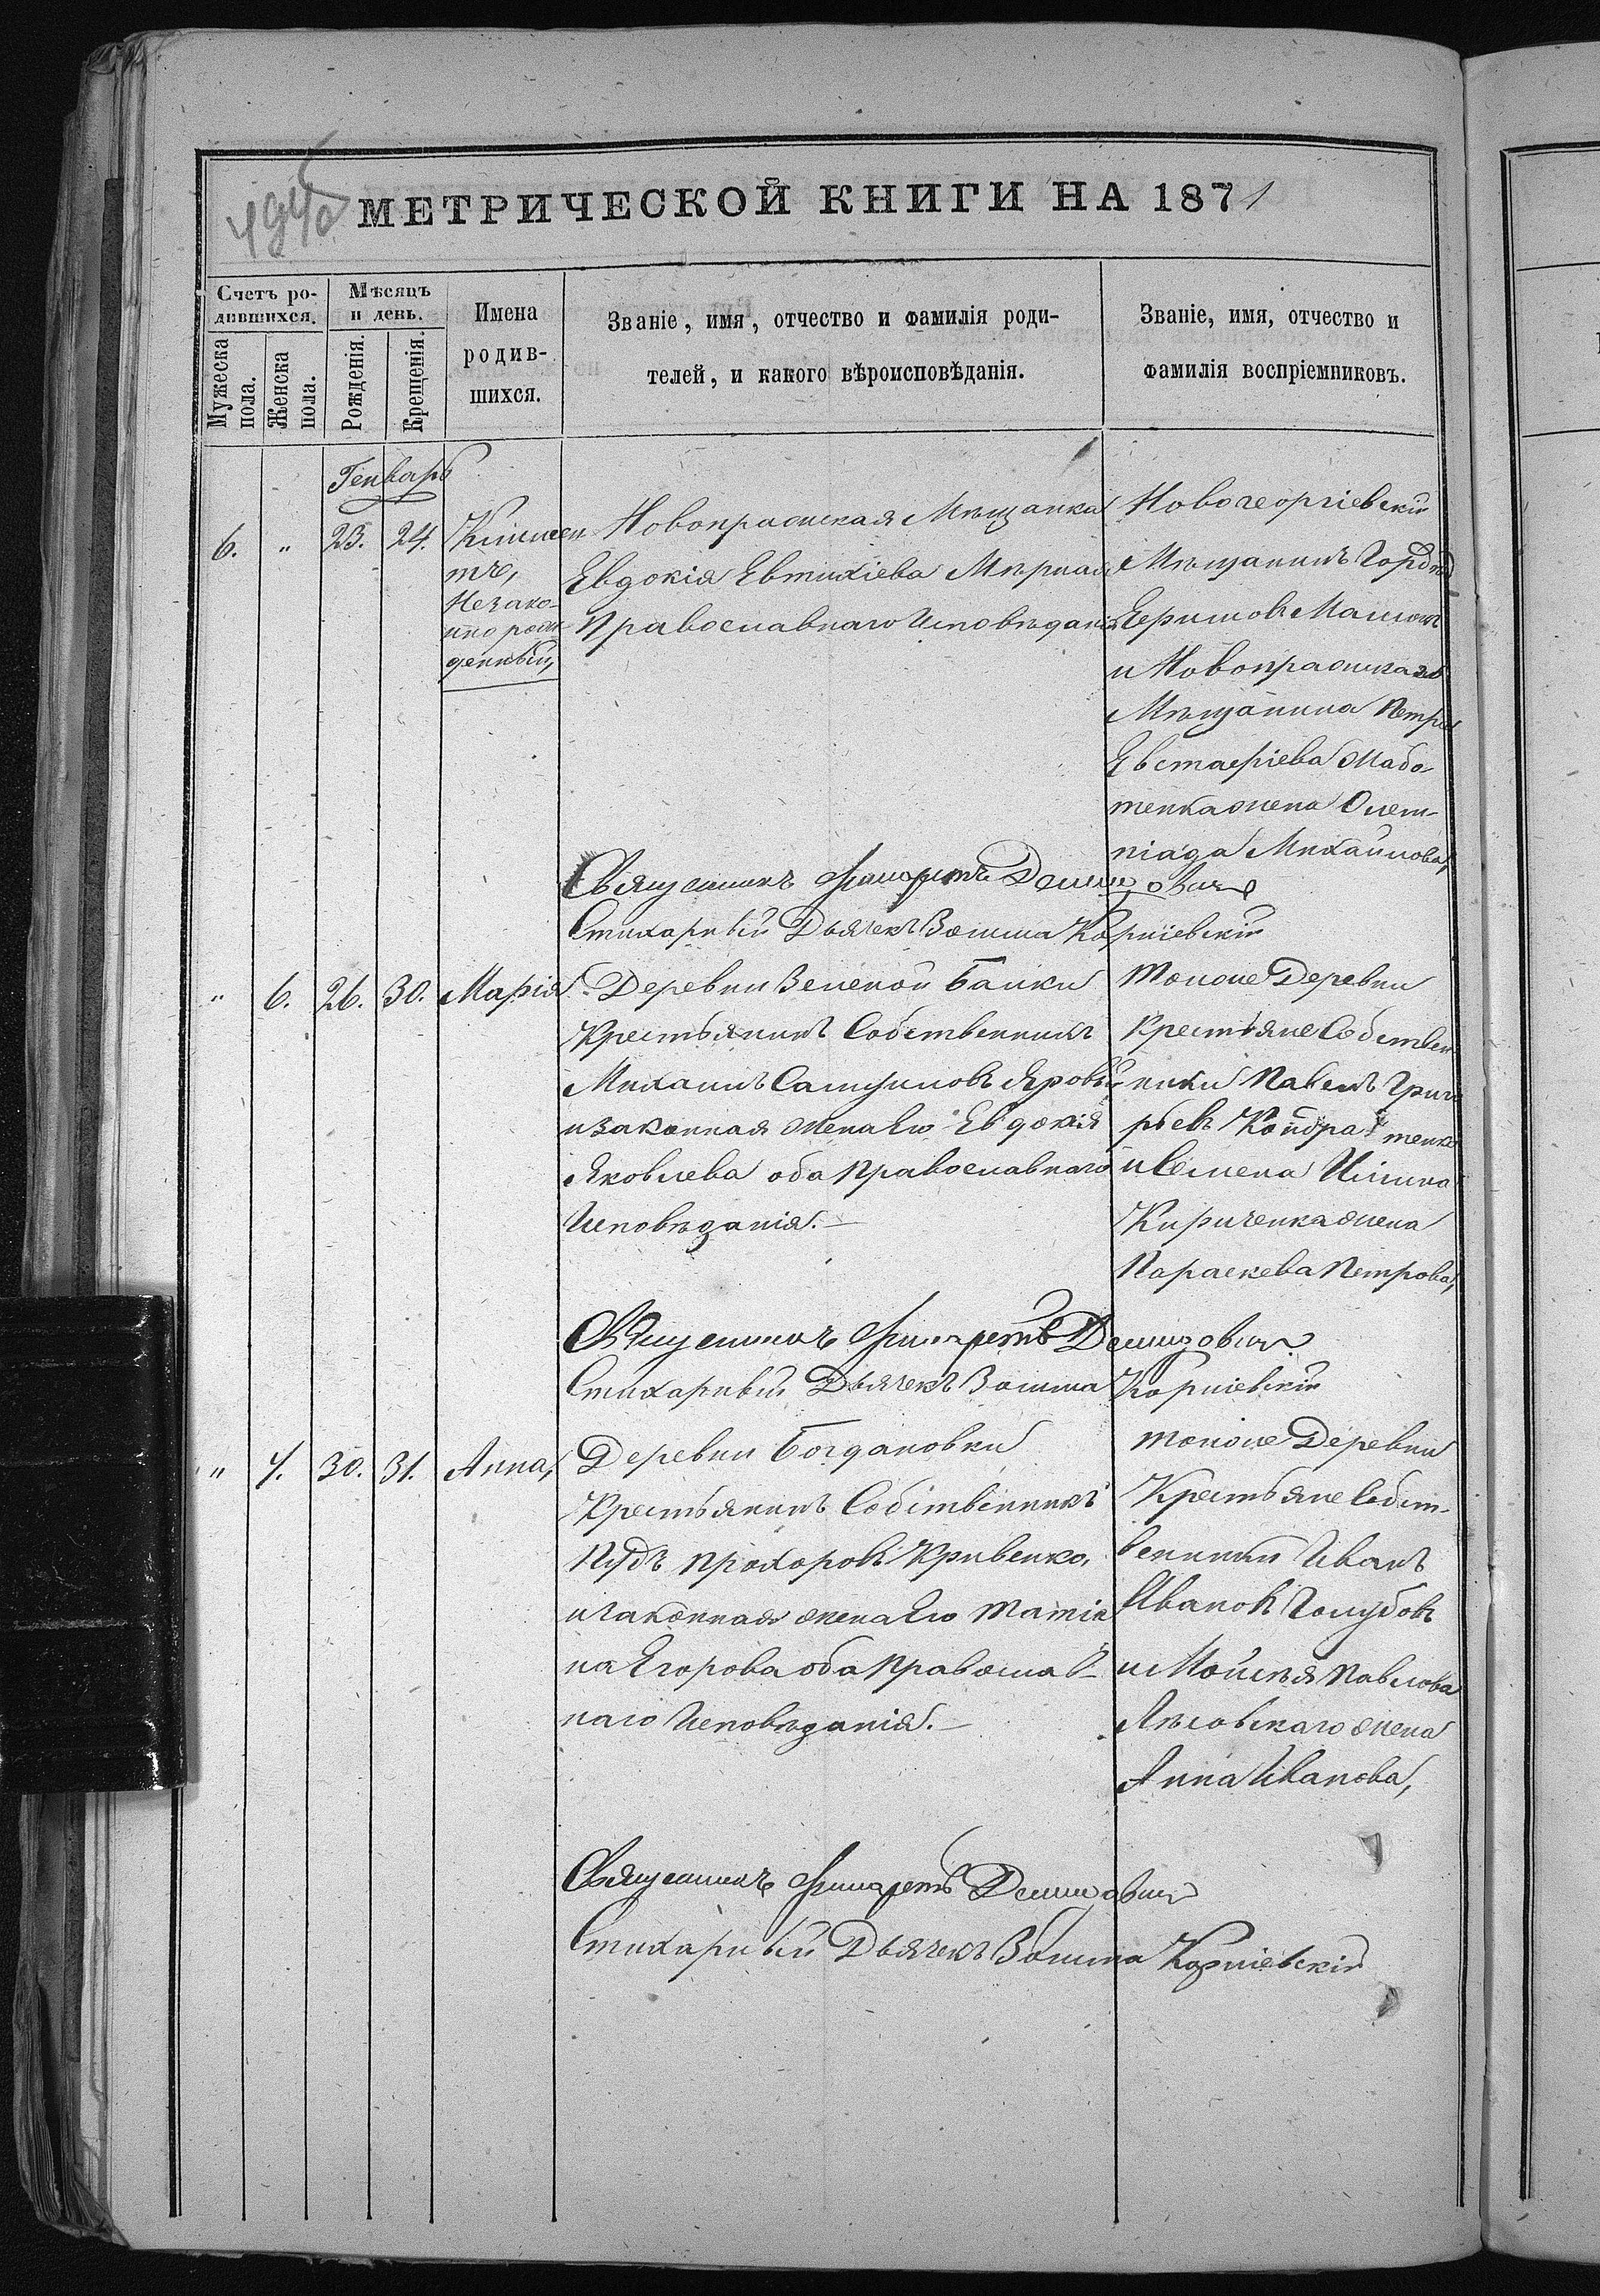 494об
МЕТРИЧЕСКОЙ КНИГИ НА 1871
Счетъ ро-
дившихся.
Мужеска пола.
Женска пола.
Мѣсяцъ
и день.
Рожденія.
Крещенія.
Имена
родив-
шихся.
Званіе, имя, отчество и фамилія роди-
телей, и какого вѣроисповѣданія.
Званіе, имя, отчество и
фамилія воспріемниковъ.
Генварь
6.
"
23.
24.
Климен
тъ,
Незако-
нно рож
денный,
Новопражская Мѣщанка
Евдокія Евтихіева
Православнаго Исповѣданія
Новогеоргіевскій
Мѣщанинъ Гордѣй
и Новопражскаго
Мѣщанина Петра
Евстафіева
тенка жена Олим-
піада Михайлова,
Священникъ Филаретъ Демидовичъ
Стихарный Дьячекъ Корніевскій
"
6.
26.
30.
Марія
Деревни Зеленой Балки
Крестьянинъ Собственникъ
Михаилъ Самуиловъ Яровый
и законная жена Его Евдокія
Яковлева оба Православнаго
Исповѣданія.—
Тойже Деревни
Крестьяне Собствен
ники Павелъ Григо
рьевъ Кондратенко
и Семена Ильина
Кириченка жена
Параскева Петрова,
Священникъ Филаретъ Демидовичъ
Стихарный Дьячекъ Корніевскій
"
7.
30.
31.
Анна,
Деревни Богдановки
Крестьянинъ Собственникъ
Пудъ Прохоровъ Кривенко,
и законная жена Его Татіа
на Егорова оба Православ-
наго Исповѣданія.—
тойже Деревни
Крестьяне Собст-
венники Иванъ
Ивановъ Голубовъ
и Мойсѣя Павлова
Лѣсовскаго жена
Анна Иванова,
Священникъ Филаретъ Демидовичъ
Стихарный Дьячекъ Корніевскій